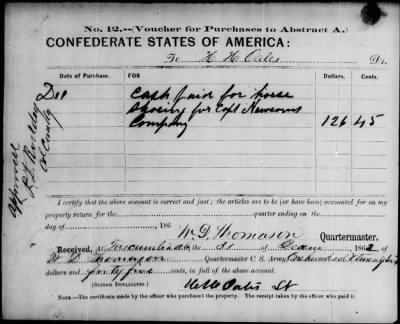 No. 12.--(Voucher for Purchases to Abstract A.)
CONFEDERATE STATES OF AMERICA:
To H. H. Oates Dr.
Date of Purchase. FOR Dollars. Cents.
Dec Cash paid for horse
Shoeing for Capt Newsoms
Company 126 45
Approved
Col Comdg
I certify that the above account is correct and just; the articles are to be (or have been) accounted for on my
property return for the quarter ending on the
day of , 186
W. D. Thomason Quartermaster.
Received, at Tuscumbia Ala the 31 of December 1862 of
W. D. Thomason Quartermaster C. S. Army, One hundred & twenty Six
dollars and forty five cents
(SIGNED DUPLICATES.) H H Oates Lt
NOTE.—The certificate made by the officer who made the purchase. The receipt taken by the officer who paid it.